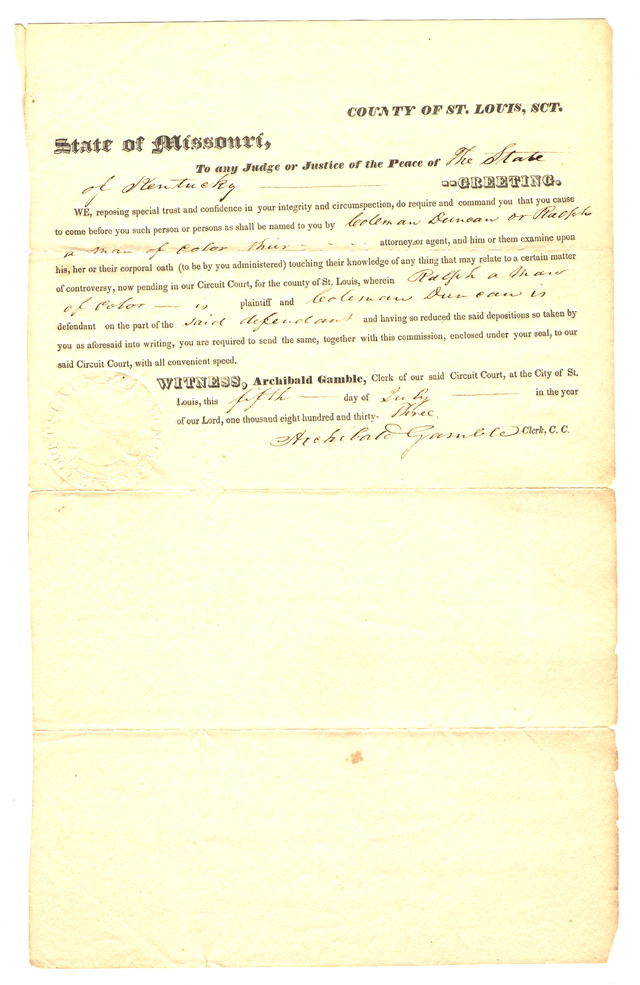 COUNTY OF ST. LOUIS, SCT.
State of Missouri,
To any Judge or Justice of the Peace of The State
of Kentucky --GREETING.
WE, reposing special trust and confidence in your integrity and circumspection, do require and command you that you cause
to come before you such person or persons as shall be named to you by Coleman Duncan or Ralph
a man of color their attorney, or agent, and him or them examine upon
his, her or their corporal oath (to be by you administered) touching their knowledge of any thing that may relate to a certain matter
of controversy, now pending in our Circuit Court, for the county of St. Louis, wherein Ralph a Man
of color — is plaintiff and Coleman Duncan is
defendant on the part of the said defendant and having so reduced the said depositions so taken by
you as aforesaid into writing, you are required to send the same, together with this commission, enclosed under your seal, to our
said Circuit Court, with all convenient speed.
WITNESS, Archibald Gamble, Clerk of our said Circuit Court, at the City of St.
Louis, this fifth — day of July — in the year
of our Lord, one thousand eight hundred and thirty- Three.
Archibald Gamble Clerk, C. C.